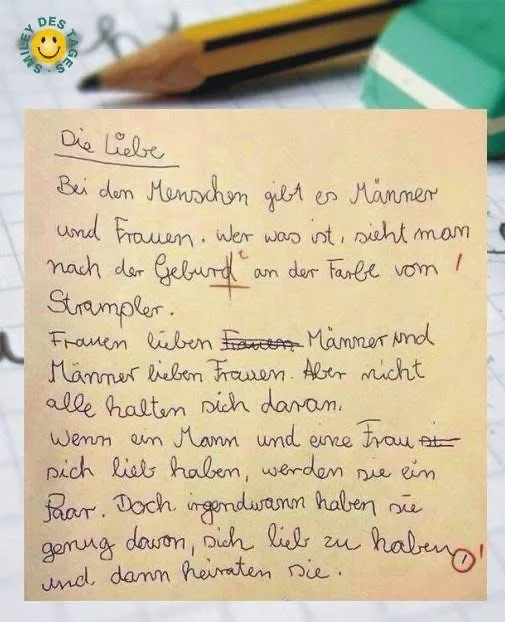 SMILEY DES TAGES
Die Liebe
Bei den Menschen gibt es Männer
und Frauen. Wer was ist, sieht man
nach der Geburd t an der Farbe vom !
Strampler.
Frauen lieben Frauen Männer und
Männer lieben Frauen. Aber nicht
alle halten sich daran.
Wenn ein Mann und eine Frau
sich lieb haben, werden sie ein
Paar. Doch irgendwann haben sie
genug davon, sich lieb zu haben !
und dann heiraten sie.